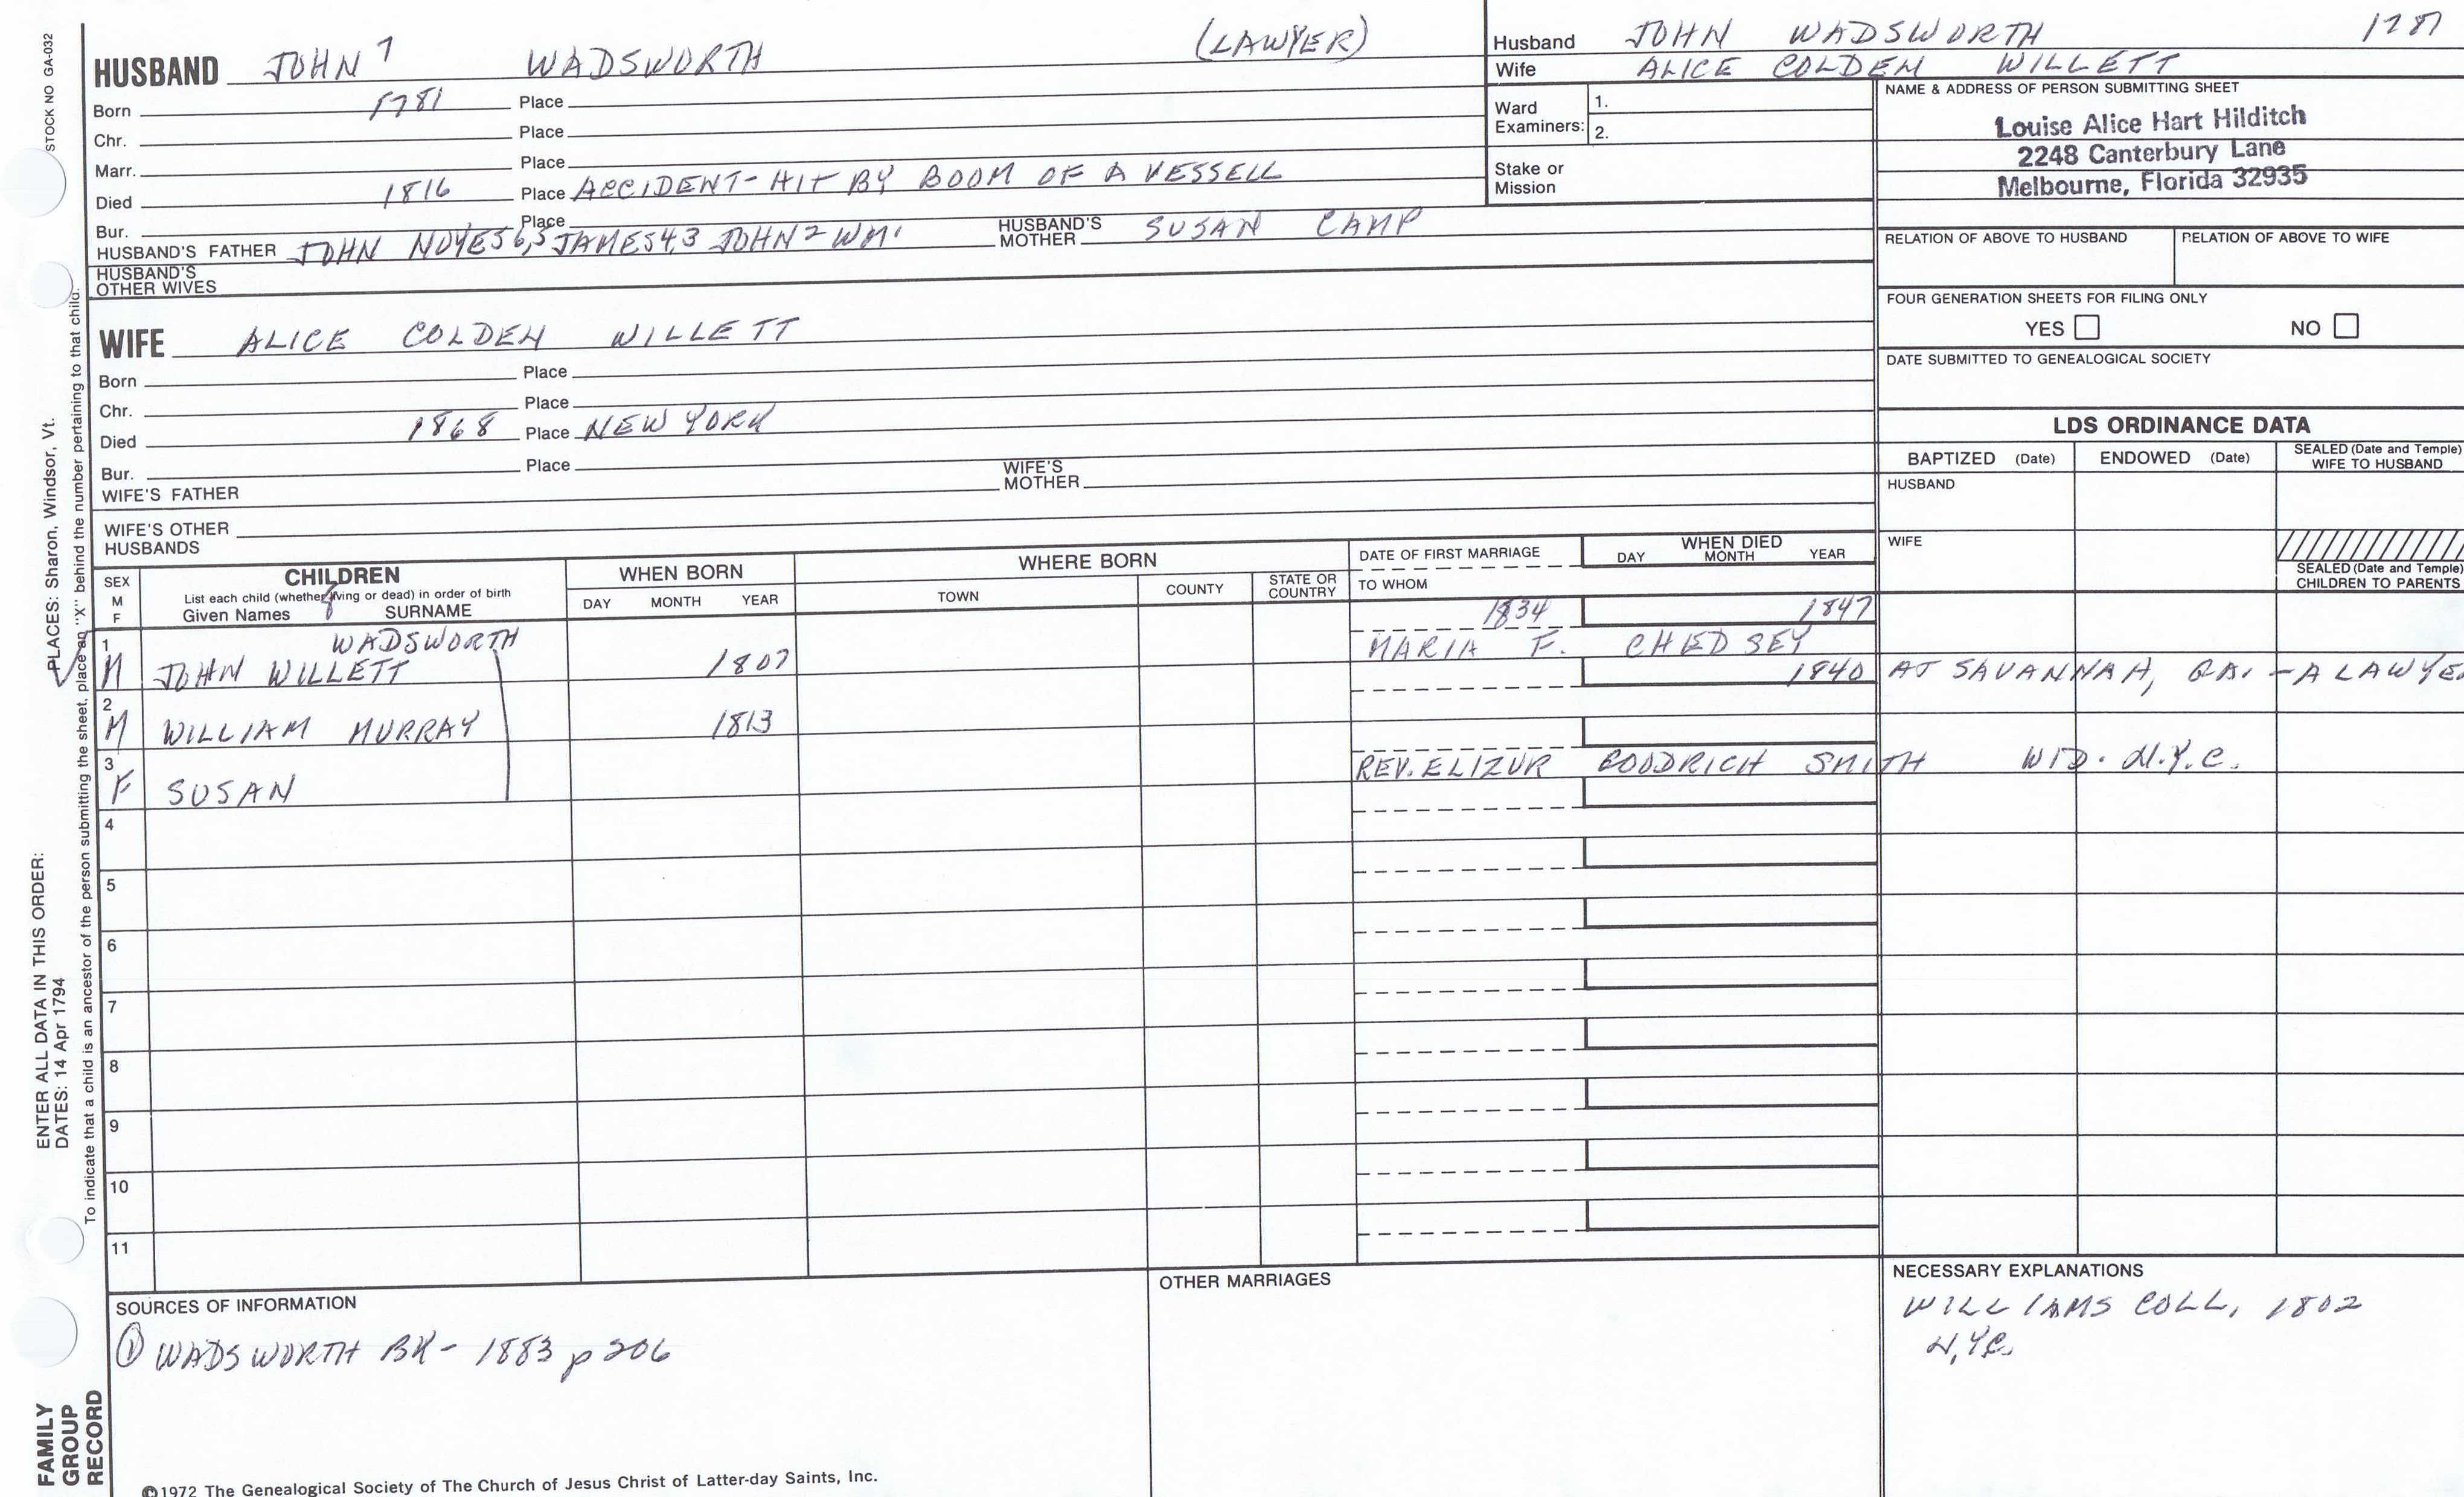 STOCK NO GA-032
HUSBAND JOHN 7 WADSWORTH (LAWYER)
Born 1781 Place
Chr. Place
Marr. Place
Died 1816 Place ACCIDENT-HIT BY BOOM OF A VESSELL
Bur. Place
HUSBAND'S FATHER JOHN NOYES 6,5 JAMES 4,3 JOHN 2 WM 1 HUSBAND'S MOTHER SUSAN CAMP
HUSBAND'S OTHER WIVES
WIFE ALICE COLDEN WILLETT
Born Place
Chr. Place
Died 1868 Place NEW YORK
Bur. Place
WIFE'S FATHER WIFE'S MOTHER
WIFE'S OTHER HUSBANDS
Husband JOHN WADSWORTH 1781
Wife ALICE COLDEN WILLETT
Ward Examiners: 1.
2.
Stake or Mission
NAME & ADDRESS OF PERSON SUBMITTING SHEET
Louise Alice Hart Hilditch
2248 Canterbury Lane
Melbourne, Florida 32935
RELATION OF ABOVE TO HUSBAND RELATION OF ABOVE TO WIFE
FOUR GENERATION SHEETS FOR FILING ONLY
YES NO
DATE SUBMITTED TO GENEALOGICAL SOCIETY
LDS ORDINANCE DATA
BAPTIZED (Date) ENDOWED (Date) SEALED (Date and Temple) WIFE TO HUSBAND
HUSBAND
WIFE
SEALED (Date and Temple) CHILDREN TO PARENTS
SEX M F
CHILDREN
List each child (whether living or dead) in order of birth
Given Names SURNAME
WHEN BORN
DAY MONTH YEAR
WHERE BORN
TOWN COUNTY STATE OR COUNTRY
DATE OF FIRST MARRIAGE
TO WHOM
WHEN DIED
DAY MONTH YEAR
1 M JOHN WILLETT WADSWORTH 1807 1834 1847
MARIA F. CHEDSEY
2 M WILLIAM MURRAY 1813 1840 AT SAVANNAH, GA. - A LAWYE
3 F SUSAN REV. ELIZUR GOODRICH SMITH WID. N.Y.C.
4
5
6
7
8
9
10
11
SOURCES OF INFORMATION
① WADSWORTH BK- 1883 p 206
OTHER MARRIAGES
NECESSARY EXPLANATIONS
WILLIAMS COLL, 1802
N,YC.
ENTER ALL DATA IN THIS ORDER:
DATES: 14 Apr 1794
PLACES: Sharon, Windsor, Vt.
To indicate that a child is an ancestor of the person submitting the sheet, place an "X" behind the number pertaining to that child.
FAMILY
GROUP
RECORD
©1972 The Genealogical Society of The Church of Jesus Christ of Latter-day Saints, Inc.